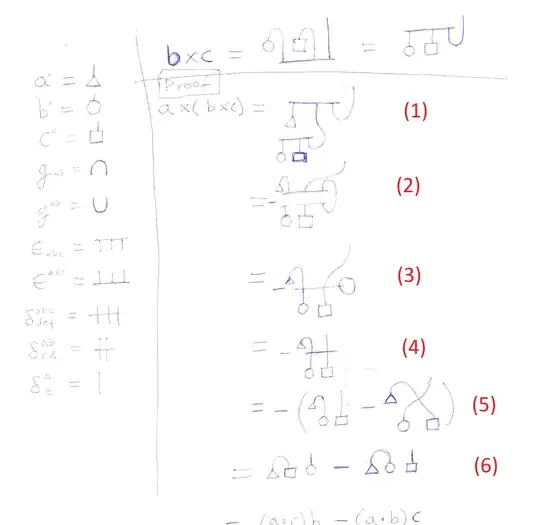 b×c = =
Proof
a×(b×c) = (1)
= - (2)
= - (3)
= - (4)
= - ( - ) (5)
= - (6)
= (a·c)b - (a·b)c
aᵃ =
bᵃ =
cᵃ =
g_ab =
g^ab =
ϵ_abc =
ϵ^abc =
δ^abc_def =
δ^ab_cd =
δ^a_b =